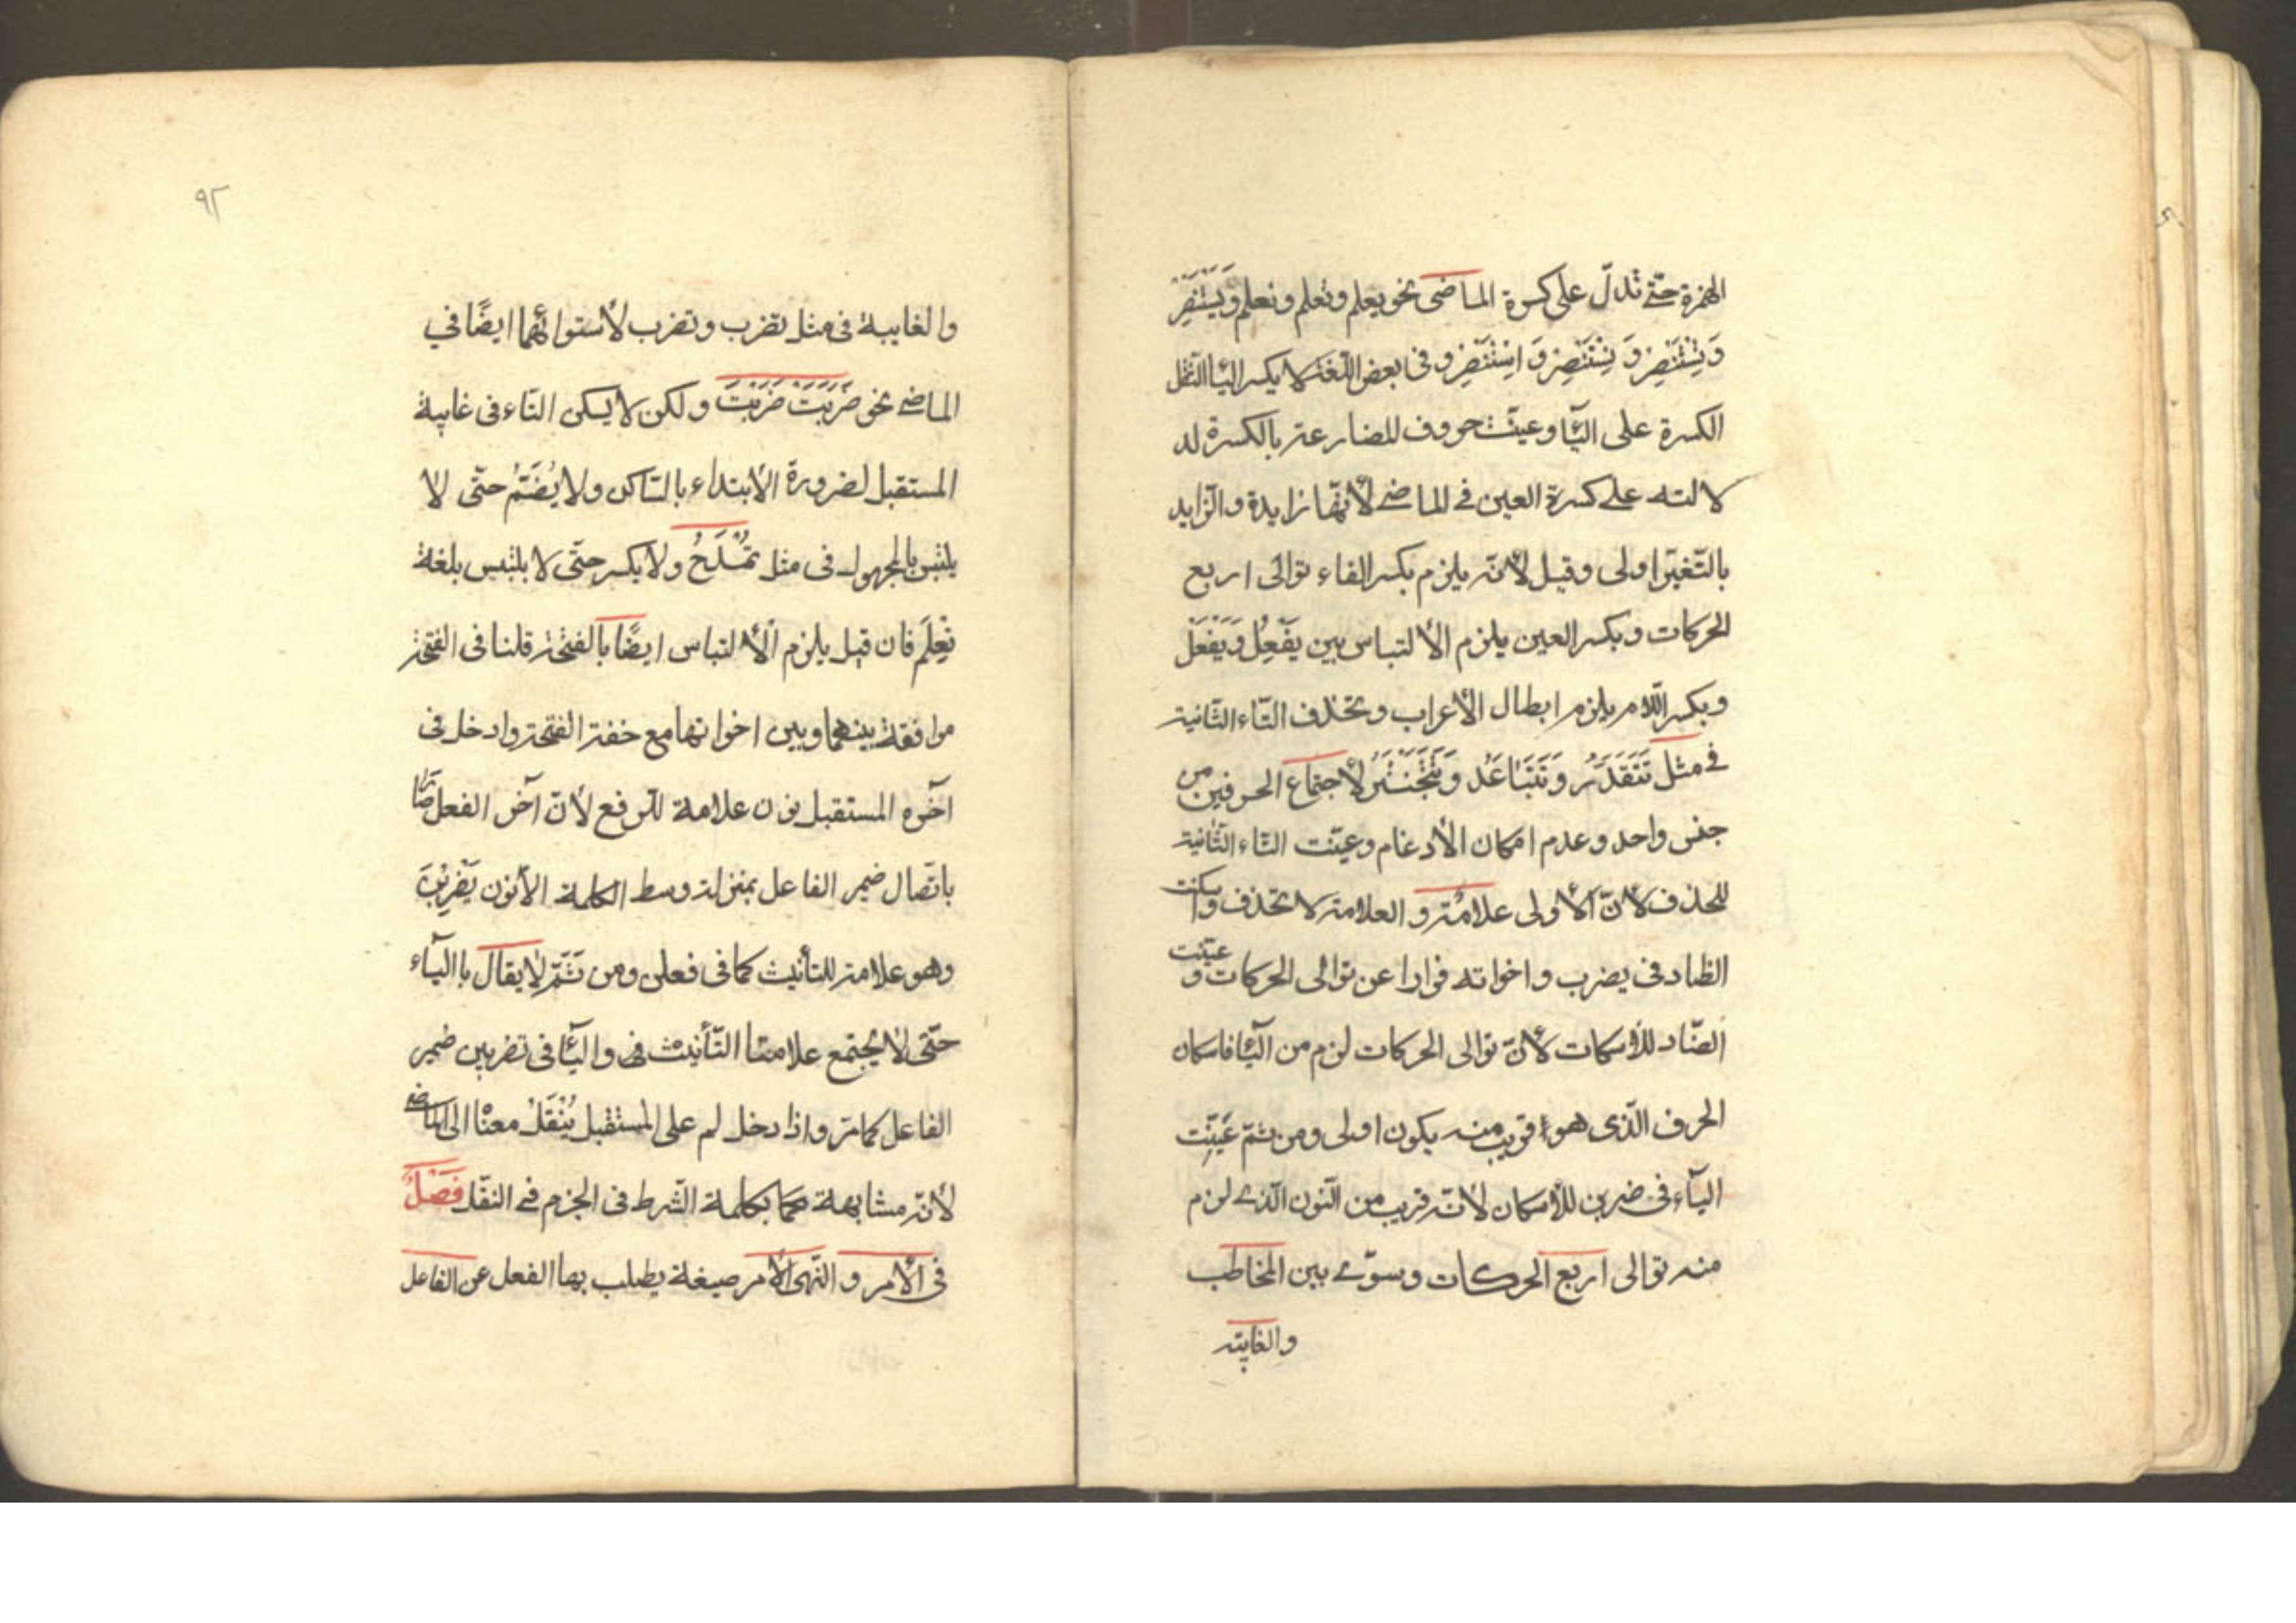 الهمزة حتّى تدلّ على كسرة الماضى نحو يعلم وتعلم ونعلم وَيَسْتَنْصِرُ
وَتِسْتَنْصِرُ وَنِسْتَنْصِرُ وَاِسْتَنْصِرُ وفى بعض اللّغة لا يكسر اليآ لثقل
الكسرة على اليآ وعينت حروف المضارعة بالكسرة لد
لالته على كسرة العين فى الماضى لأنّها زايدة والزّايد
بالتّغيّر اولى وقيل لأنّه يلزم بكسر الفاء توالى اربع
الحركات وبكسر العين يلزم الألتباس بين يَفْعِلُ وَيَفْعَلُ
وبكسر اللّام يلزم ابطال الأعراب وتحذف التّاء الثّانية
فى مثل تَتَقَدَّرُ وَتَتَبَاعَدُ وَتَتَبَخْتَرُ لأجتماع الحرفين من
جنس واحد وعدم امكان الأدغام وعيّنت التّاء الثّانية
للحذف لأنّ الأولى علامة والعلامة لا تحذف واسكنت
الظاد فى يضرب واخواته فرارا عن توالى الحركات وعيّنت
الضّاد للأسكات لأنّ توالى الحركات لزم من اليآ فاسكان
الحرف الّذى هو اقرب منه يكون اولى ومن ثمّ عَيِّنَت
اليآء فى ضربن للأسكان لأنّه قريب من النّون الّذى لزم
منه توالى اربع الحركات وسوّى بين المخاطب
والغايبة
٩٢
والغايبة فى مثل تضرب وتضرب لأستوائهما ايضًا في
الماضى نحو ضَرَبَتْ ضَرَبْتَ ولكن لا يسكن التاء فى غايبة
المستقبل لضرورة الأبتداء بالسّاكن ولا يُضَمّ حتّى لا
يلتبس بالمجهول فى مثل تُمْدَحُ ولا يكسر حتّى لا يلتبس بلغة
تِعْلَمُ فان قيل يلزم الألتباس ايضًا بالفتحة قلنا فى الفتحة
موافقة بينهما وبين اخواتها مع خفة الفتحة وادخل فى
آخره المستقبل نون علامة للرفع لأنّ آخر الفعل صَارَ
باتّصال ضمير الفاعل بمنزلة وسط الكلمة الأنون يَضْرِبْنَ
وهو علامة للتأنيث كما فى فعلن ومن ثَمَّ لا يقال باليآء
حتّى لا يجتمع علامتا التّأنيث فى واليآ فى تضربين ضمير
الفاعل كما مرّ واذا دخل لم على المستقبل يُنْقَلُ معناه الى الماضى
لأنّه مشابهة كما بكلمة الشّرط فى الجزم فى النقل فَصْلٌ
فى الأمر والنّهى الأمر صيغة يطلب بها الفعل عن الفاعل